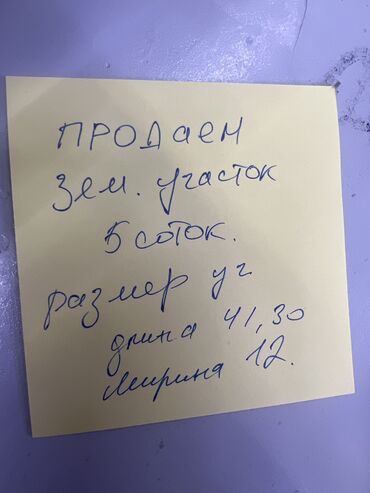 ПРОДАЕМ
Зем. участок
5 соток.
размер уч
длина 41,30
ширина 12.